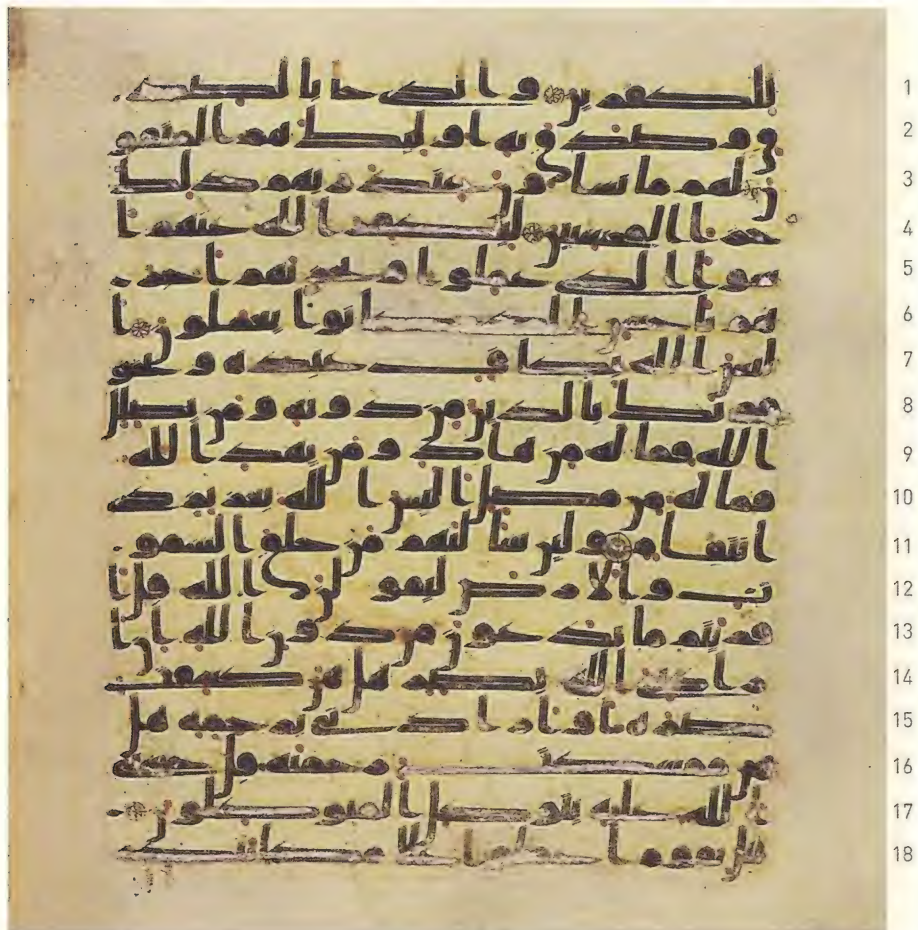 للكفرين والذى جا بالصد 1
ق وصدق به اوليك هم المتقو 2
ن لهم ما يشاون عند ربهم ذلك 3
جزا المحسنين ليكفر الله عنهم ا 4
سوا الذى عملوا ويجزيهم اجر 5
هم باحسن الذى كانوا يعملون ا 6
ليس الله بكاف عبده ويخو 7
فونك بالذين من دونه ومن يضلل 8
الله فما له من هاد ومن يهد الله 9
فما له من مضل اليس الله بعزيز ذى 10
انتقام ولين سالتهم من خلق السمو 11
ت والارض ليقولن الله قل ا 12
فريتم ما تدعون من دون الله ان ا 13
رادنى الله بضر هل هن كشفت 14
ضره او ارادنى برحمة هل 15
هن ممسكت رحمته قل حسبى 16
الله عليه يتوكل المتوكلون 17
قل يقوم اعملوا على مكانتكم 18